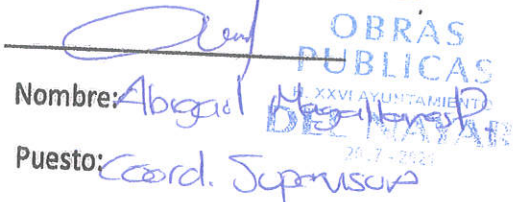 OBRAS
PUBLICAS
XXVI AYUNTAMIENTO
DEL NAYAR
Nombre: Abigail Magallanes P.
Puesto: Coord. Supervisora